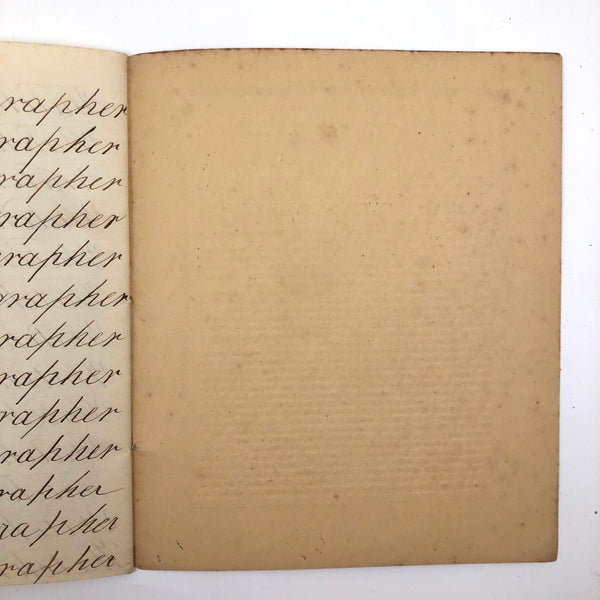 rapher
rapher
rapher
rapher
grapher
grapher
rapher
rapher
rapher
rapher
rapher
rapher
rapher